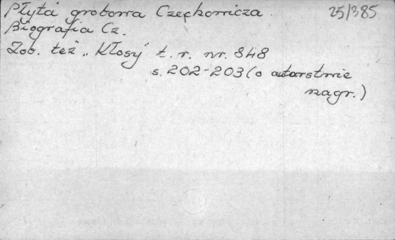 Płyta grobowa Czechowicza. 25/385
Biografia Cz.
Zob. też „Kłosy" t. r. nr. 848
s. 202-203 (o autorstwie
nagr.)